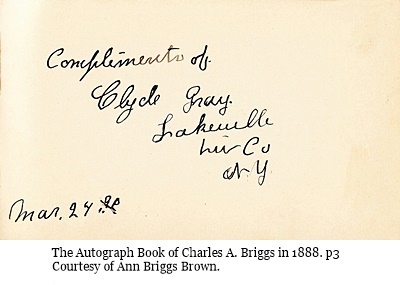 Compliments of
Clyde Gray.
Lakeville
Liv Co
N.Y.
Mar. 24
The Autograph Book of Charles A. Briggs in 1888. p3
Courtesy of Ann Briggs Brown.